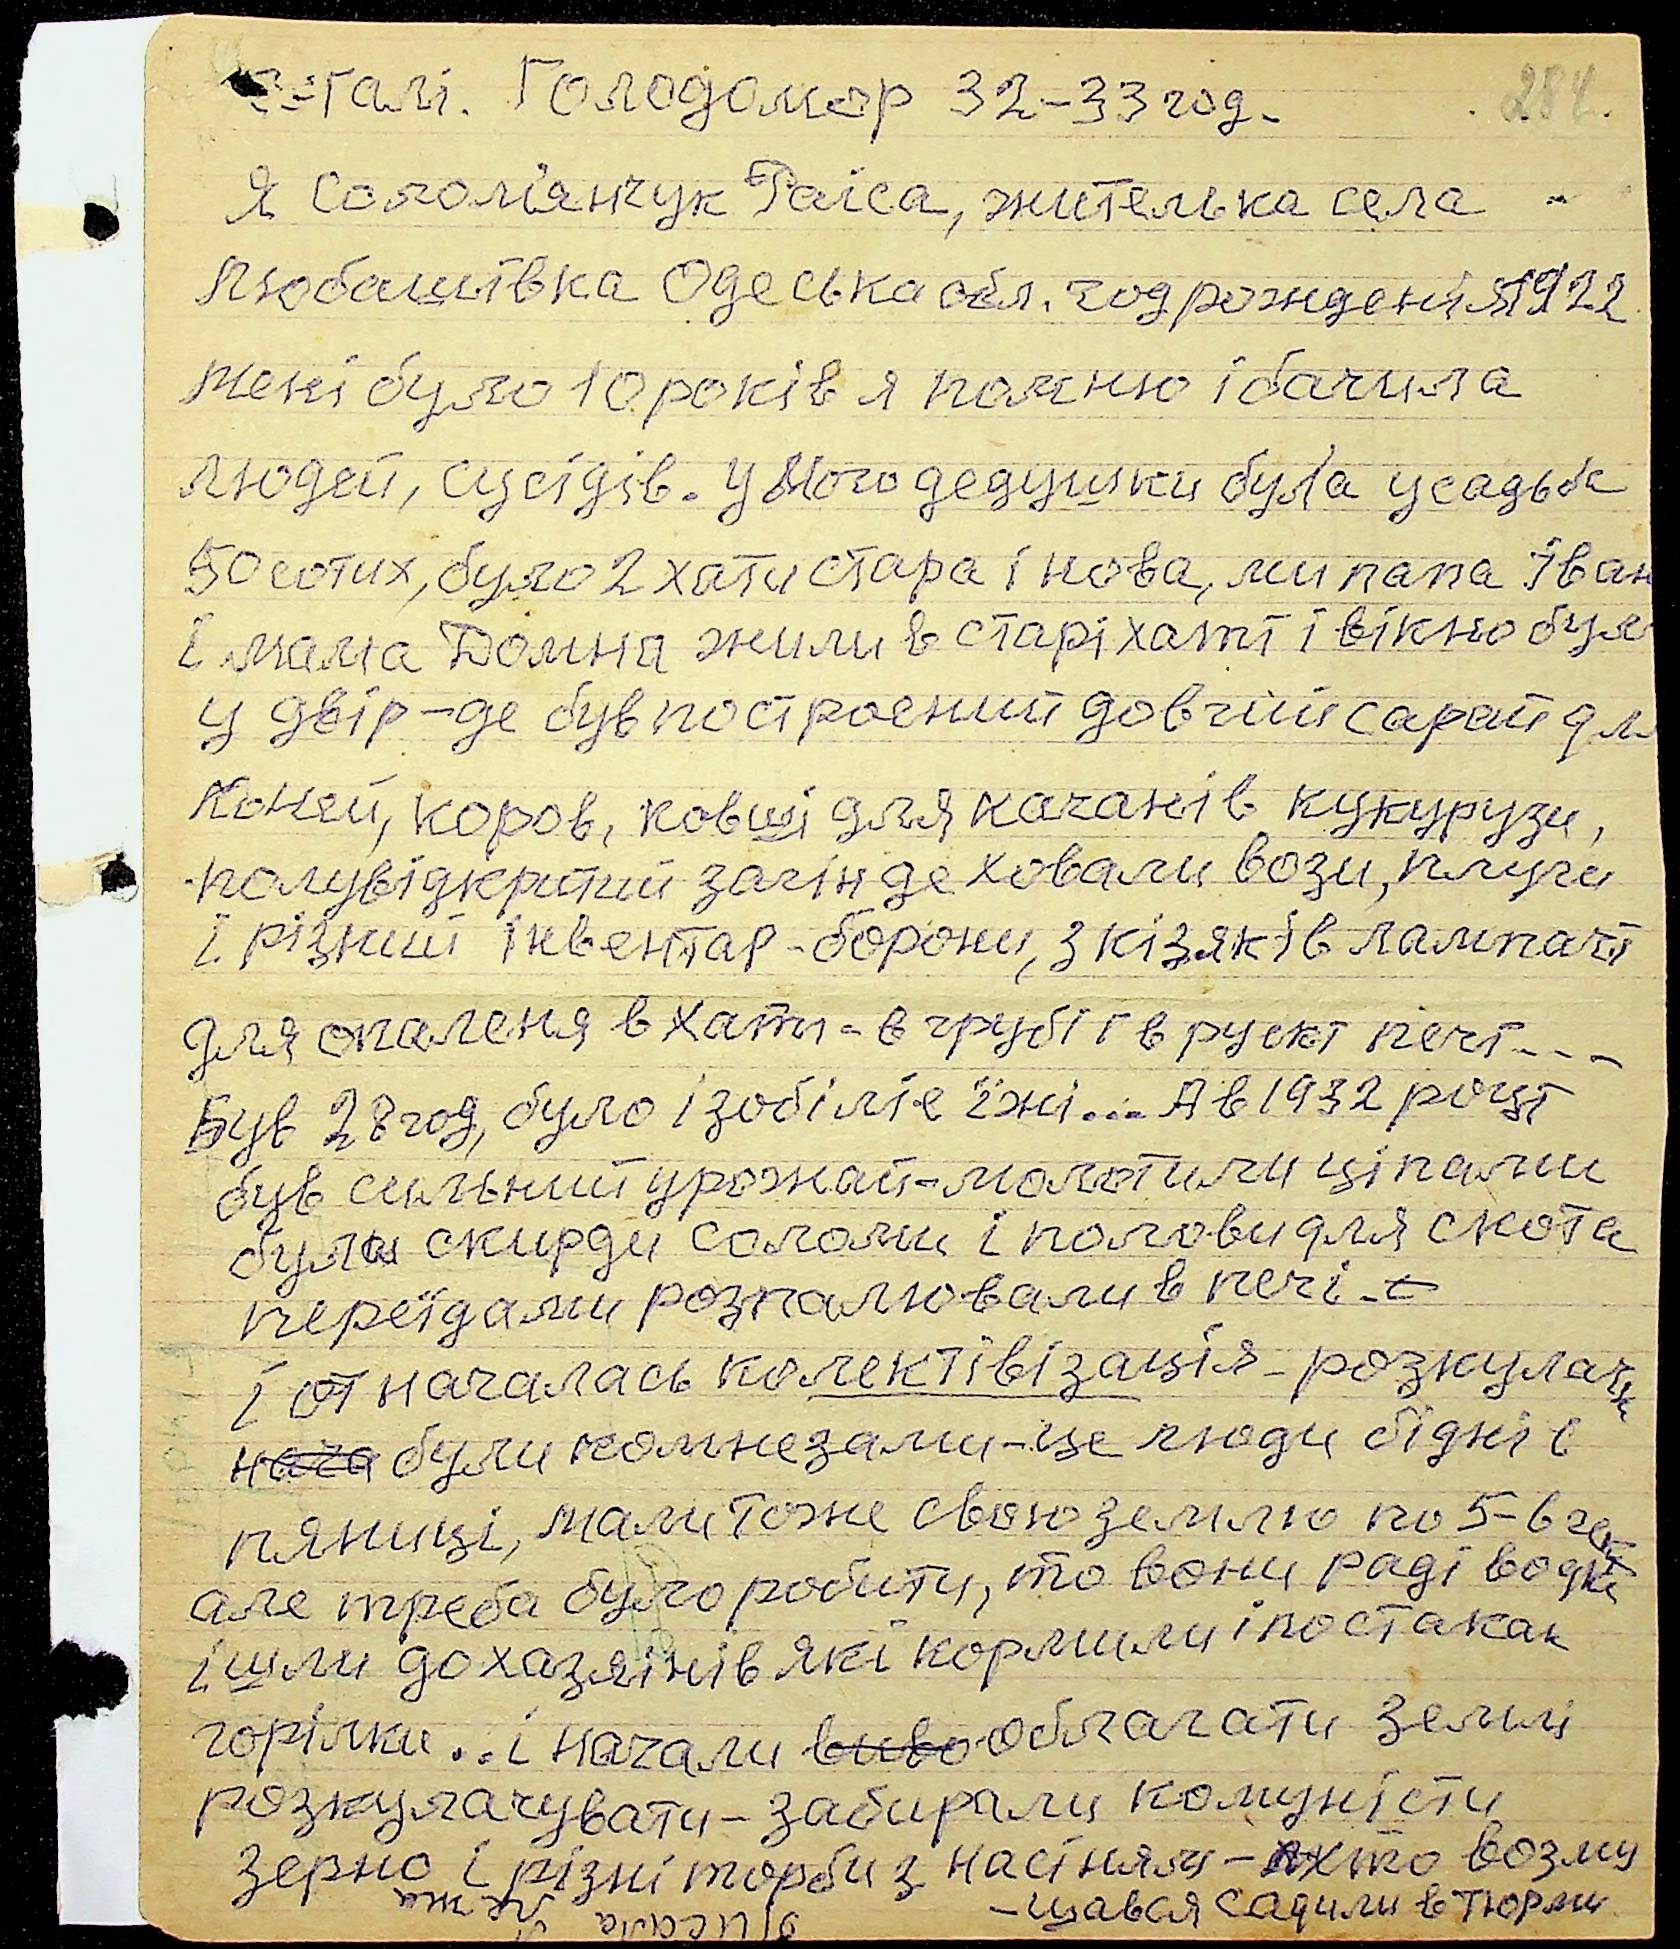 Галі. Голодомор 32-33 год.
284.
Я Соломянчук Раіса, жителька села
Любашівка Одеська обл. год рожденія 1922
Мені було 10 років я помню і бачила
людей, сусідів. У Мого дедушки була усадьба
50 сотих, було 2 хати стара і нова, ми папа Іван
і мама Домна жили в старі хаті і вікно було
у двір - де був построєний довгий сарай для
Коней, коров, ковші для качанів кукурузи,
полувідкритий загін де ховали вози, плуги
і різний інвентар - борони, з кізяків лампачі
для опаленя в хати - в грубі і в рускі печі----
Був 28 год, було ізобіліе їжі... А в 1932 році
був сильний урожай - молотили ціпами
були скирди соломи і полови для скота
переїдами розпалювали в печі. -
і от началась колектівізація - розкулачки
нача були комнезами - це люди бідні і
пяниці, мали тоже свою землю по 5-6 гек
але треба було робити, то вони раді водки
і шли до хазяїнів які кормили і по стакан
горілки... і начали виво облагати землі
розкулачувати - забирали комуністи
зерно і різні торби з насіням - хто возму
- щався садили в тюрми